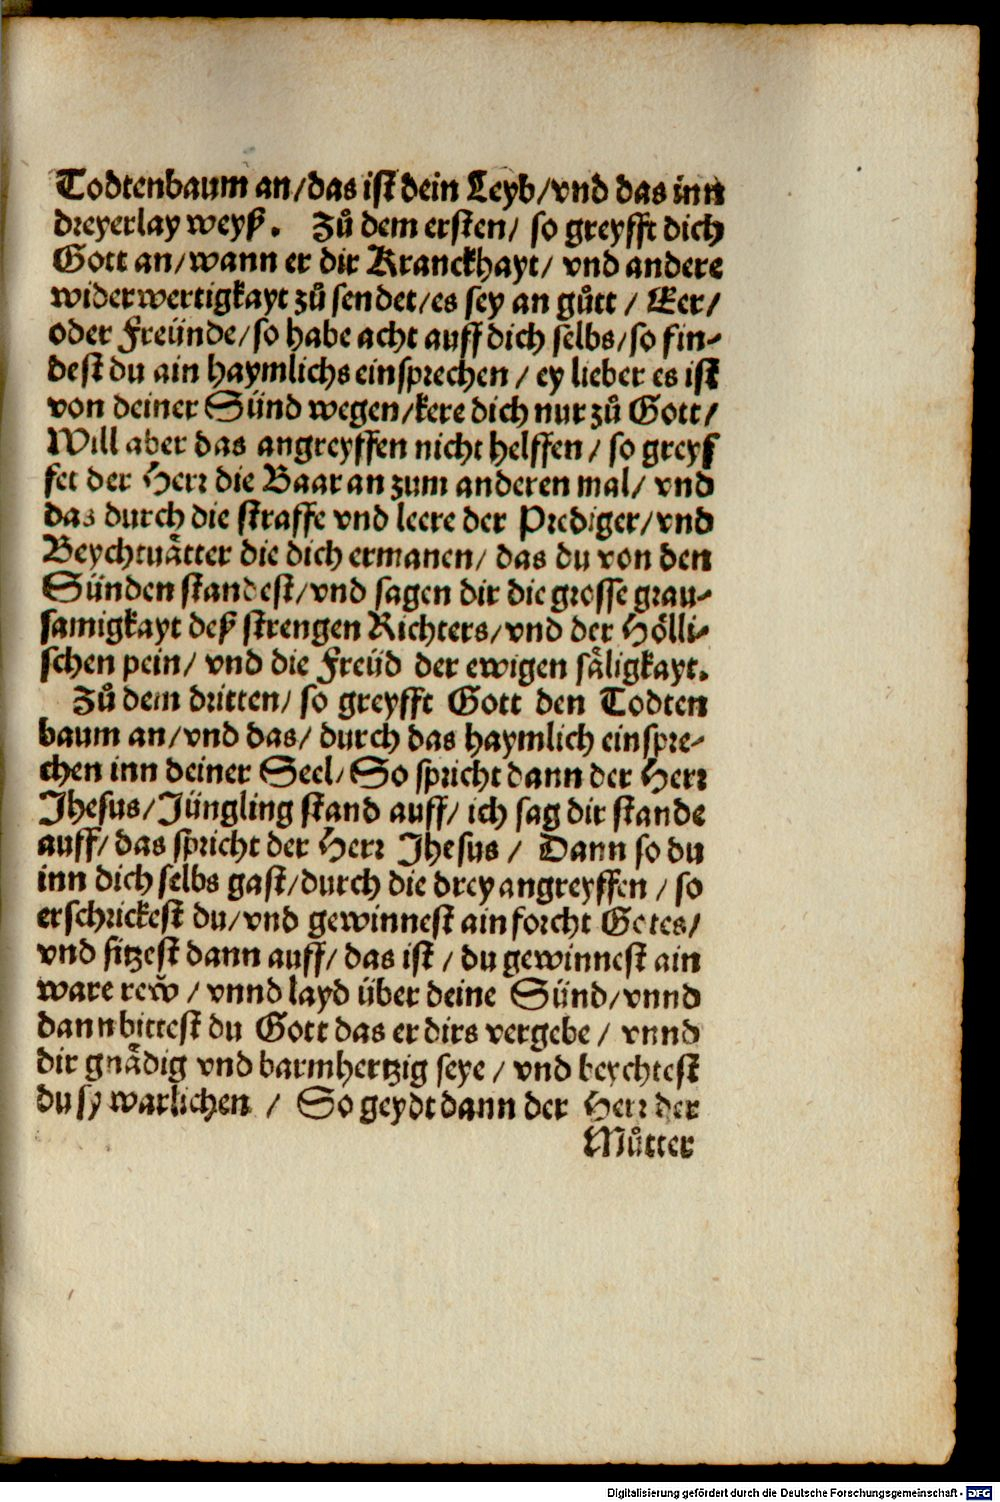 Todtenbaum an/das ist dein Leyb/vnd das inn
dreyerlay weyß. Zů dem ersten/ so greyfft dich
Gott an/wann er dir Kranckhayt/ vnd andere
widerwertigkayt zů sendet/es sey an gůtt / Eer/
oder Freünde/so habe acht auff dich selbs/so fin-
dest du ain haymlichs einsprechen / ey lieber es ist
von deiner Sünd wegen/kere dich nur zů Gott/
Will aber das angreyffen nicht helffen / so greyf
fet der Herr die Baar an zum anderen mal/ vnd
das durch die straffe vnd leere der Prediger/vnd
Beychtuätter die dich ermanen/ das du von den
Sünden standest/vnd sagen dir die grosse grau-
samigkayt deß strengen Richters/vnd der Hölli-
schen pein/ vnd die Freüd der ewigen säligkayt.
Zů dem dritten/ so greyfft Gott den Todten
baum an/vnd das/ durch das haymlich einspre-
chen inn deiner Seel/ So spricht dann der Herr
Jhesus/Jüngling stand auff/ ich sag dir stande
auff/ das spricht der Herr Jhesus / Dann so du
inn dich selbs gast/durch die drey angreyffen / so
erschrickest du/vnd gewinnest ain forcht Gotes/
vnd sitzest dann auff/ das ist / du gewinnest ain
ware rew̌ / vnnd layd über deine Sünd/vnnd
dann bittest du Gott das er dirs vergebe / vnnd
dir gnädig vnd barmhertzig seye / vnd beychtest
du sy warlichen / So geydt dann der Herr der
Můtter
Digitalisierung gefördert durch die Deutsche Forschungsgemeinschaft - DFG